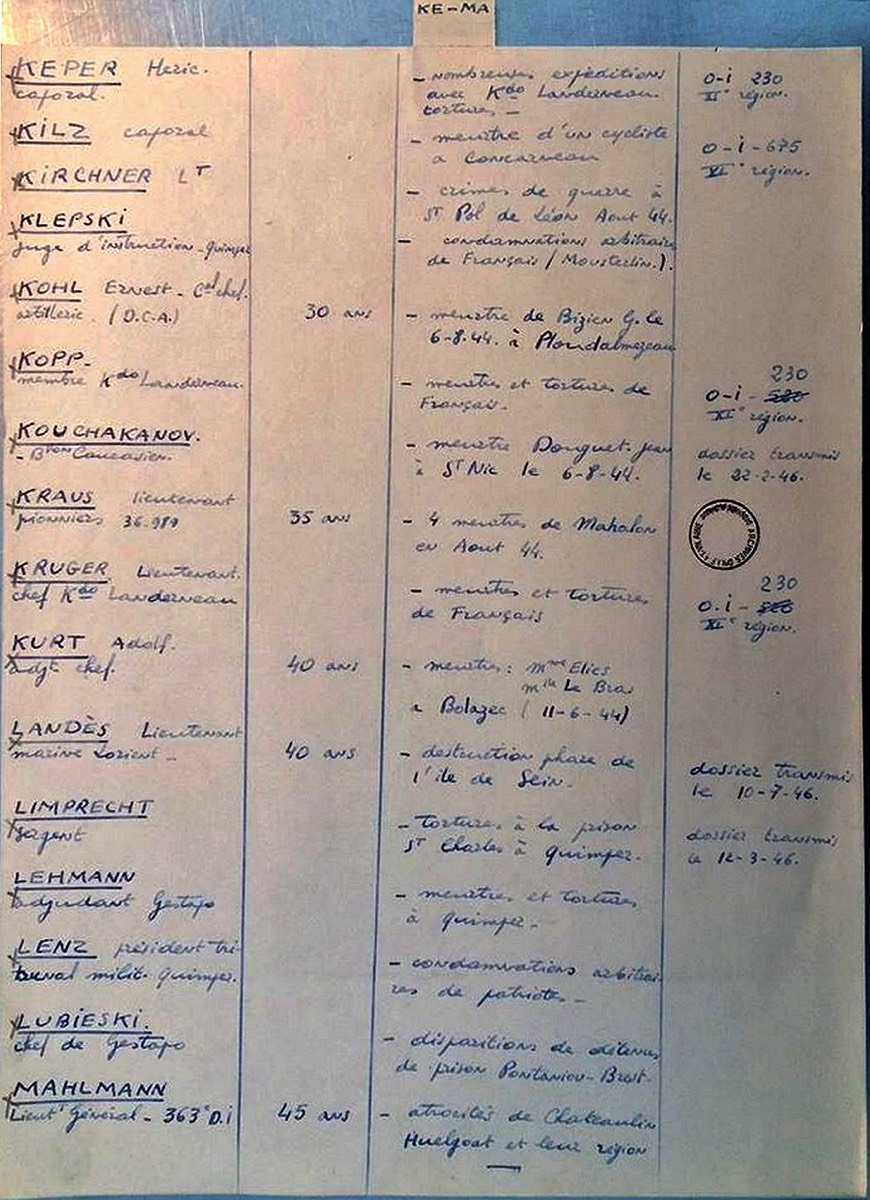 KE-MA
KEPER Heric.
caporal.
- nombreuses expéditions
avec Kdo Landerneau.
tortures -
O-i 230
XIe région.
KILZ caporal
- meurtre d'un cycliste
à Concarneau
O-i-675
VIe région.
KIRCHNER LT
- crimes de guerre à
ST Pol de Léon Aout 44.
KLEPSKI
juge d'instruction-quimper
- condamnations arbitraires
de Français (Mousterlin.).
KOHL Ernest - Cal chef.
artillerie. (D.C.A.)
30 ans
- meurtre de Bizien G. le
6-8-44. à Ploudalmezeau
KOPP-
membre Kdo Landerneau.
- meurtres et tortures de
Français.
230
O-i - 520
XIe région.
KOUCHAKANOV.
- Bton Caucasien.
- meurtre Donguet-Jean
à ST Nic le 6-8-44.
dossier transmis
le 22-2-46.
KRAUS lieutenant
pionniers 36.989
35 ans
- 4 meurtres de Mahalon
en Aout 44.
KRUGER Lieutenant.
chef Kdo Landerneau
- meurtres et tortures
de Français
230
O.i -
XIe région.
KURT Adolf.
adjt chef.
40 ans
- meurtres: mme Elies
mlle Le Bras
à Bolazec (11-6-44)
LANDÈS Lieutenant
marine Lorient -
40 ans
- destruction phare de
l'ile de Sein.
dossier transmis
le 10-7-46.
LIMPRECHT
sergent
- tortures à la prison
ST Charles à quimper.
dossier transmis
le 12-3-46.
LEHMANN
adjudant Gestapo
- meurtres et tortures
à quimper -
LENZ président tri-
bunal milit. quimper.
- condamnations arbitrai-
res de patriotes -
LUBIESKI.
chef de Gestapo
- disparitions de détenus
de prison Pontaniou-Brest.
MAHLMANN
Lieutt Général - 363e D.i
45 ans
- atrocités de Chateaulin
Huelgoat et leur région